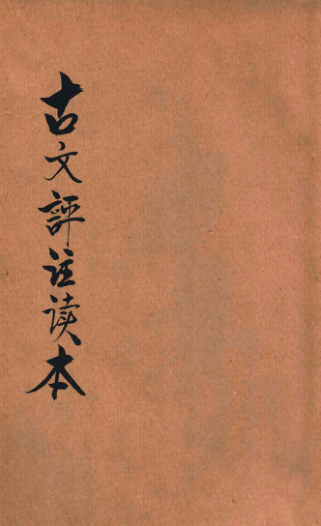 古文評注读本